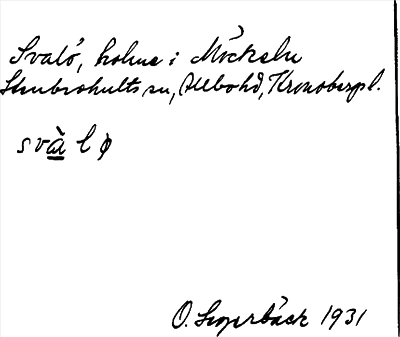 Svalö, holme i Möckeln
Stenbrohults sn, Allboh d, Kronobergs l.
svàlø
O. Lugerbäck 1931